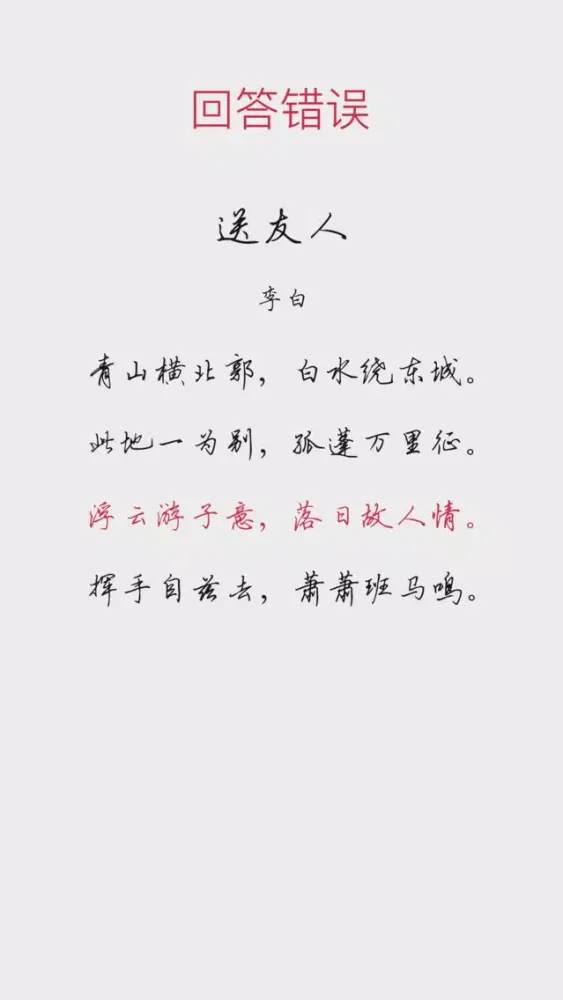 回答错误
送友人
李白
青山横北郭，白水绕东城。
此地一为别，孤蓬万里征。
浮云游子意，落日故人情。
挥手自兹去，萧萧班马鸣。